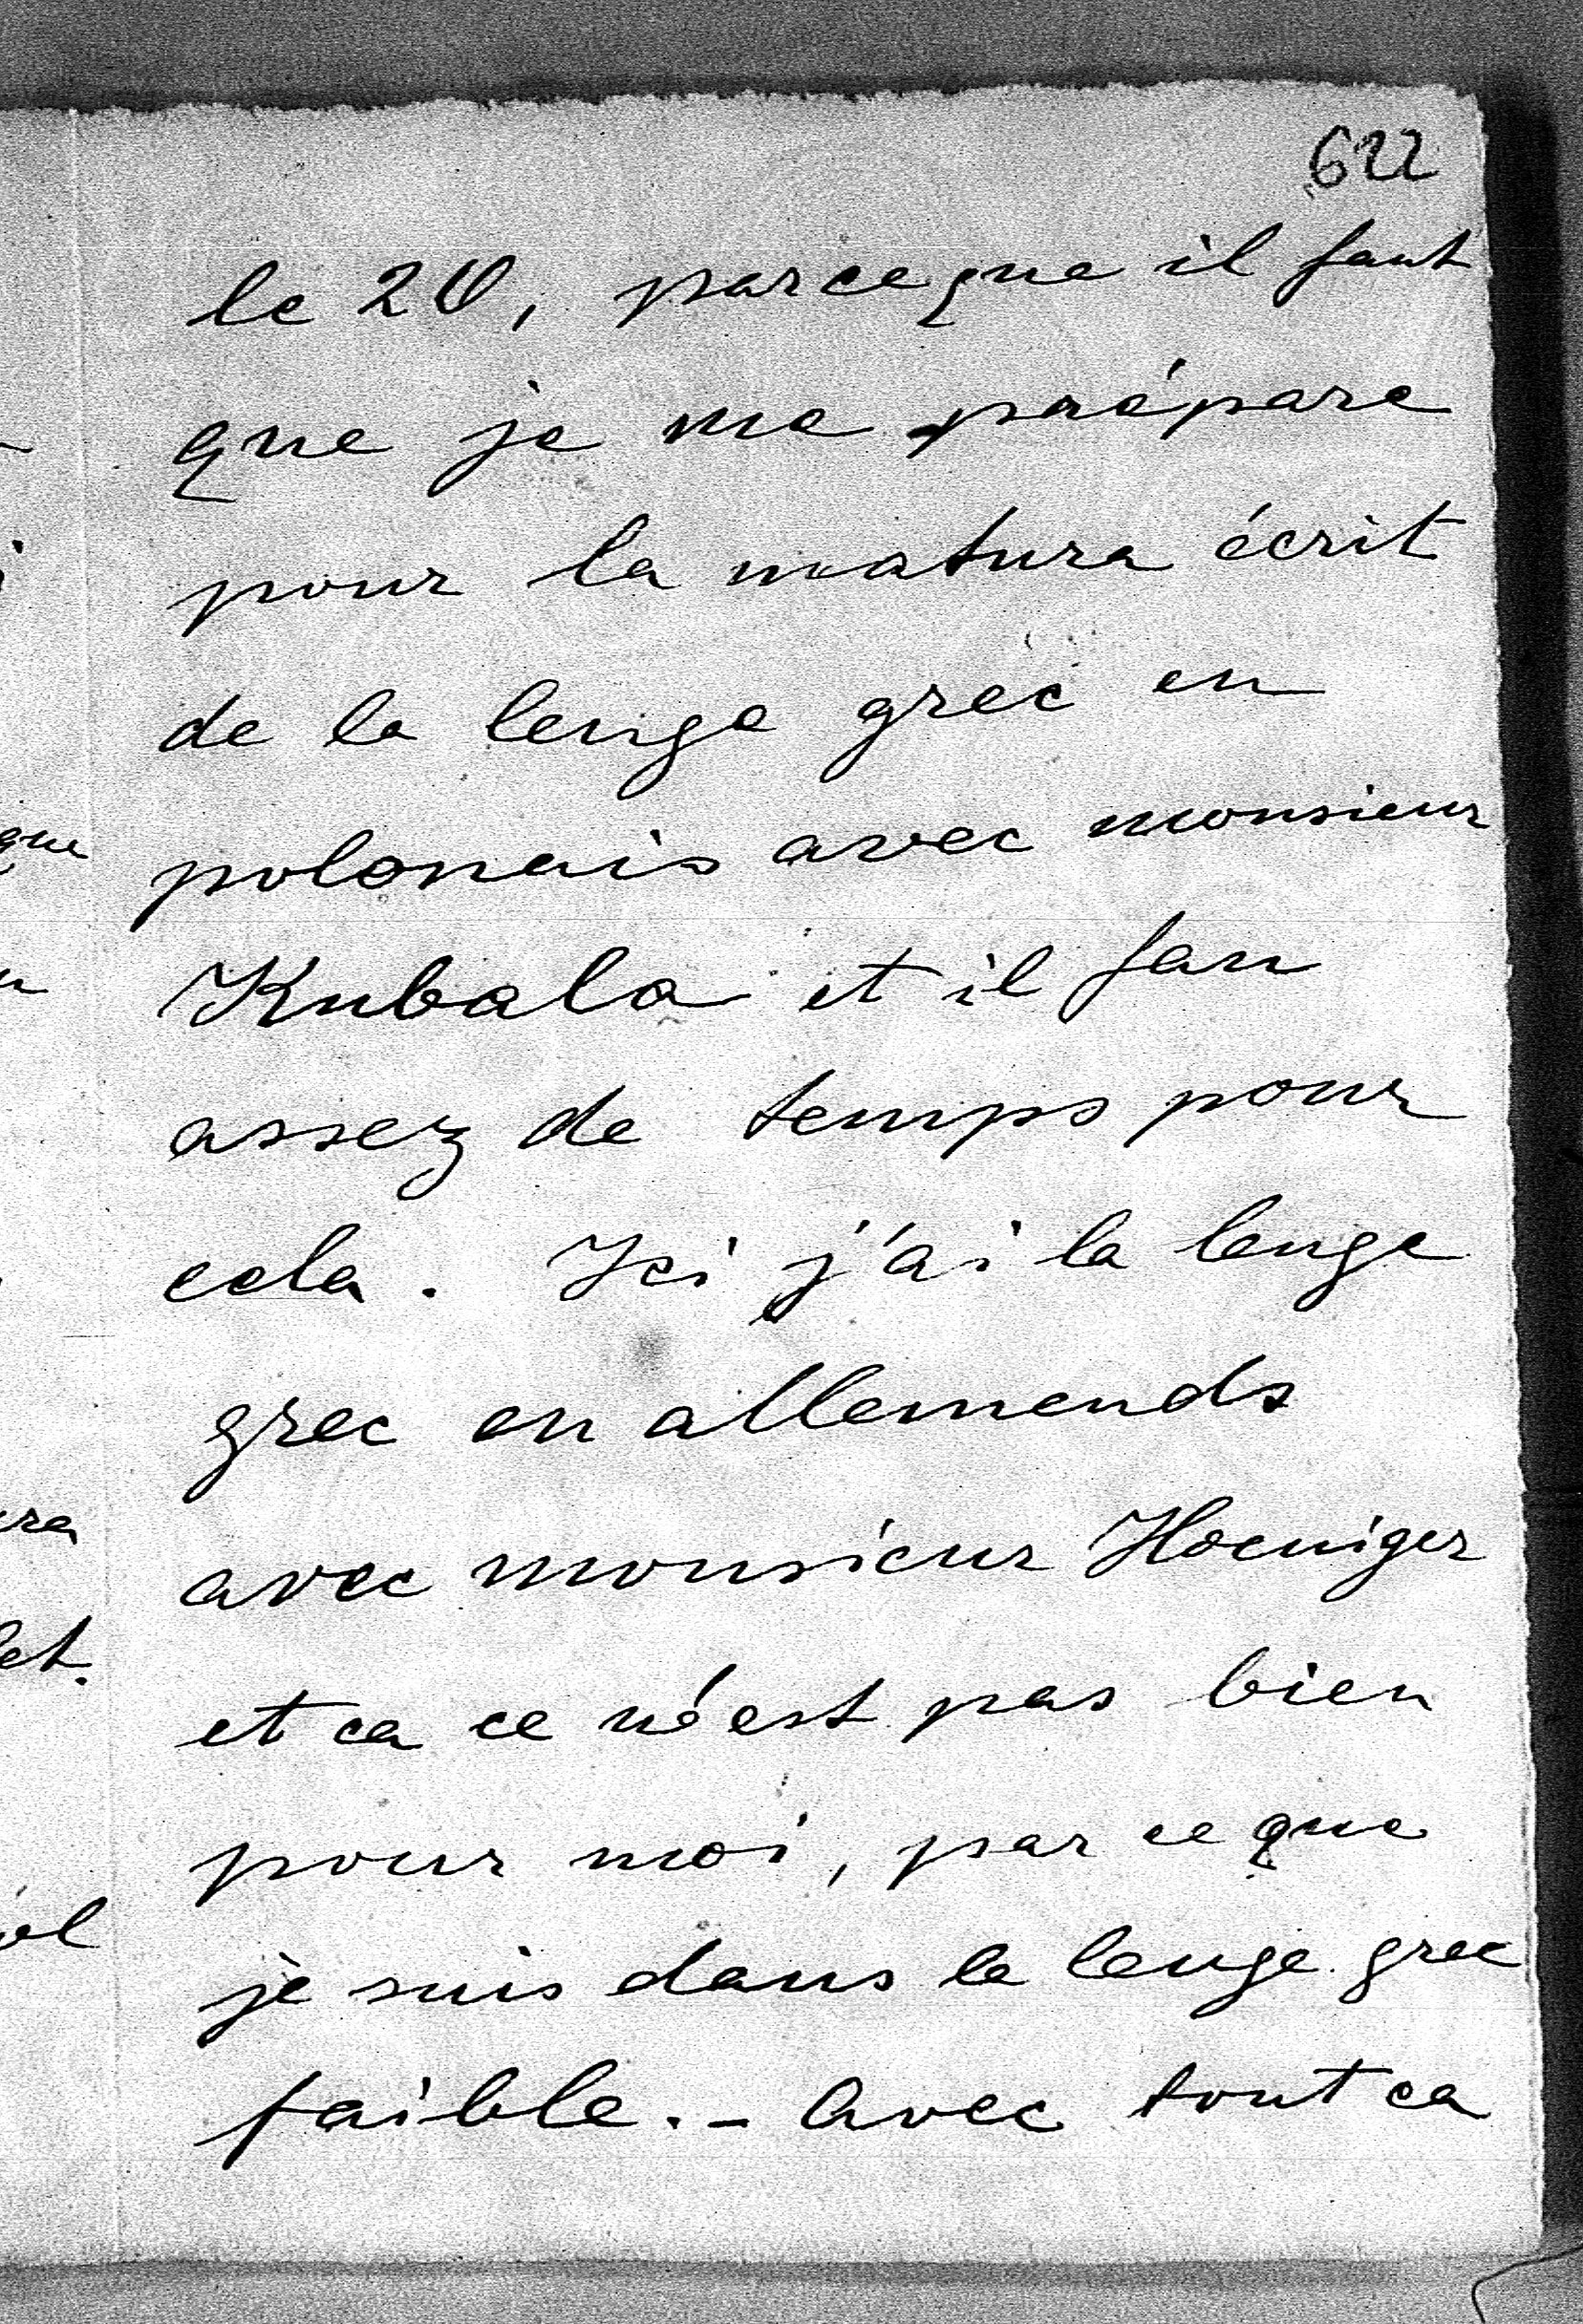 622
le 20, parceque il faut
que je me prépare
pour la matura écrit
de la lenge grec en
polonais avec monsieur
Kubala et il fau
assez de temps pour
cela. Ici j'ai la lenge
grec en allemends
avec monsieur Hoeniger
et ca ce n'est pas bien
pour moi, par ce que
je suis dans la lenge grec
faible. - Avec tout ca